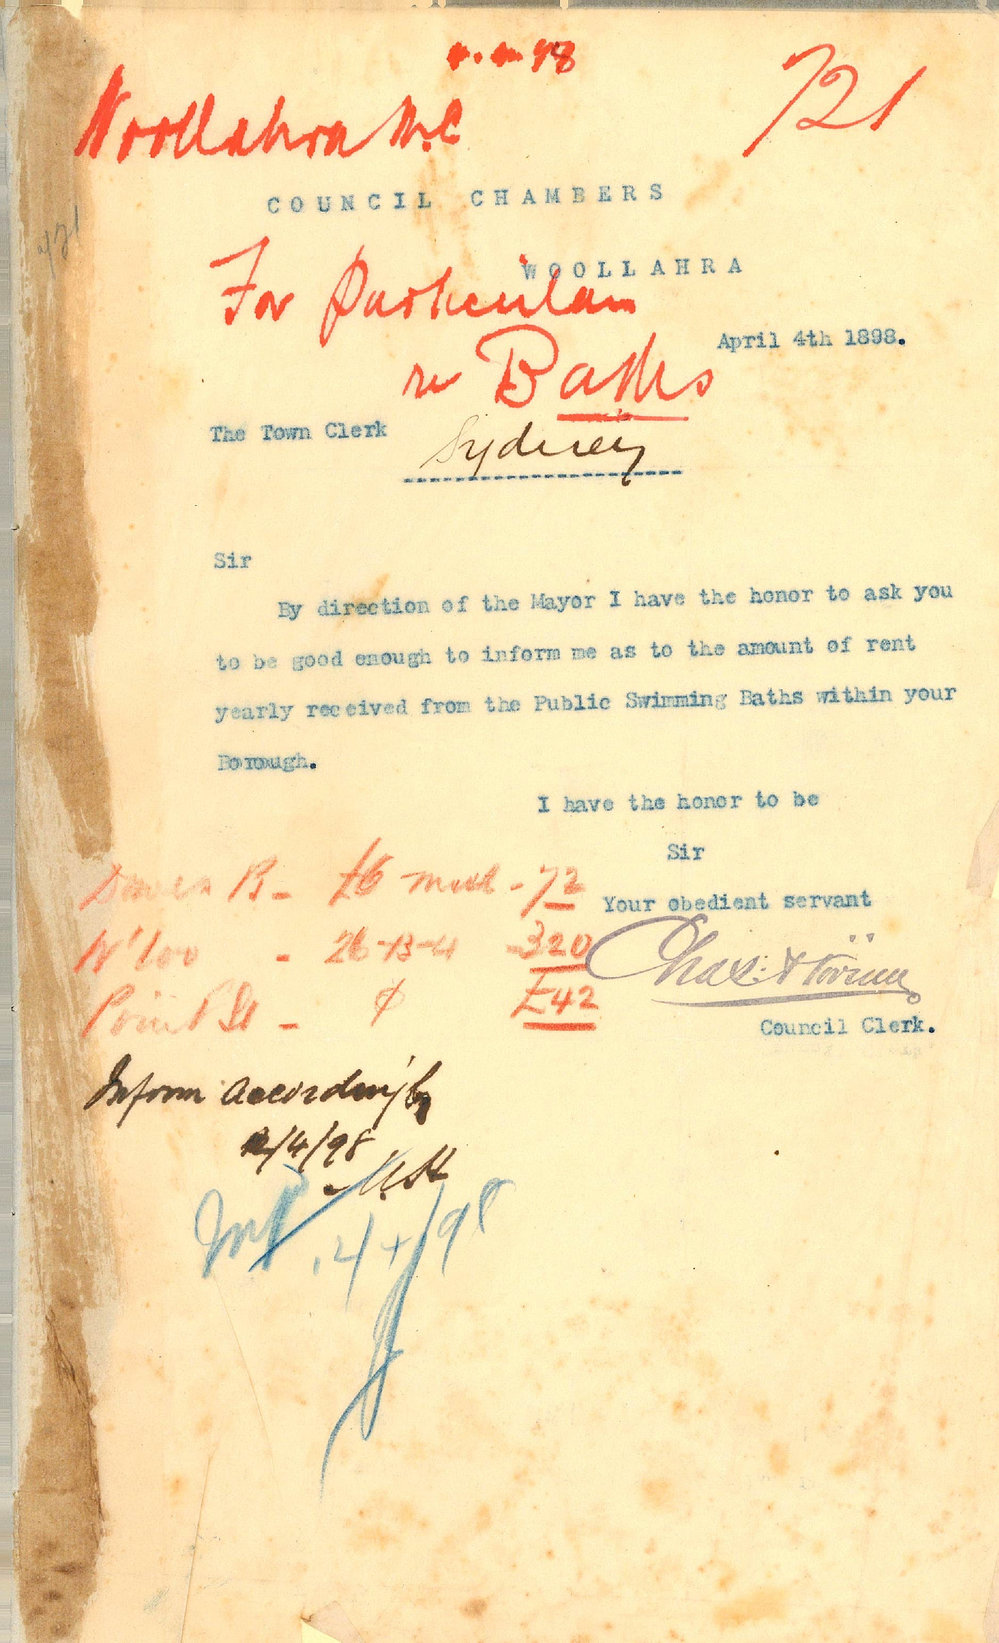 98
721
Woollahra M.C
COUNCIL CHAMBERS
WOOLLAHRA
For Particulars
April 4th 1898.
re Baths
The Town Clerk
Sydney
Sir
By direction of the Mayor I have the honor to ask you
to be good enough to inform me as to the amount of rent
yearly received from the Public Swimming Baths within your
Borough.
I have the honor to be
Sir
Your obedient servant
Council Clerk.
Dawes B - £6 mth - 72
W'loo - 26-13-4 - 320
Point St - £42
Inform accordingly
/4/98
.4/98
721